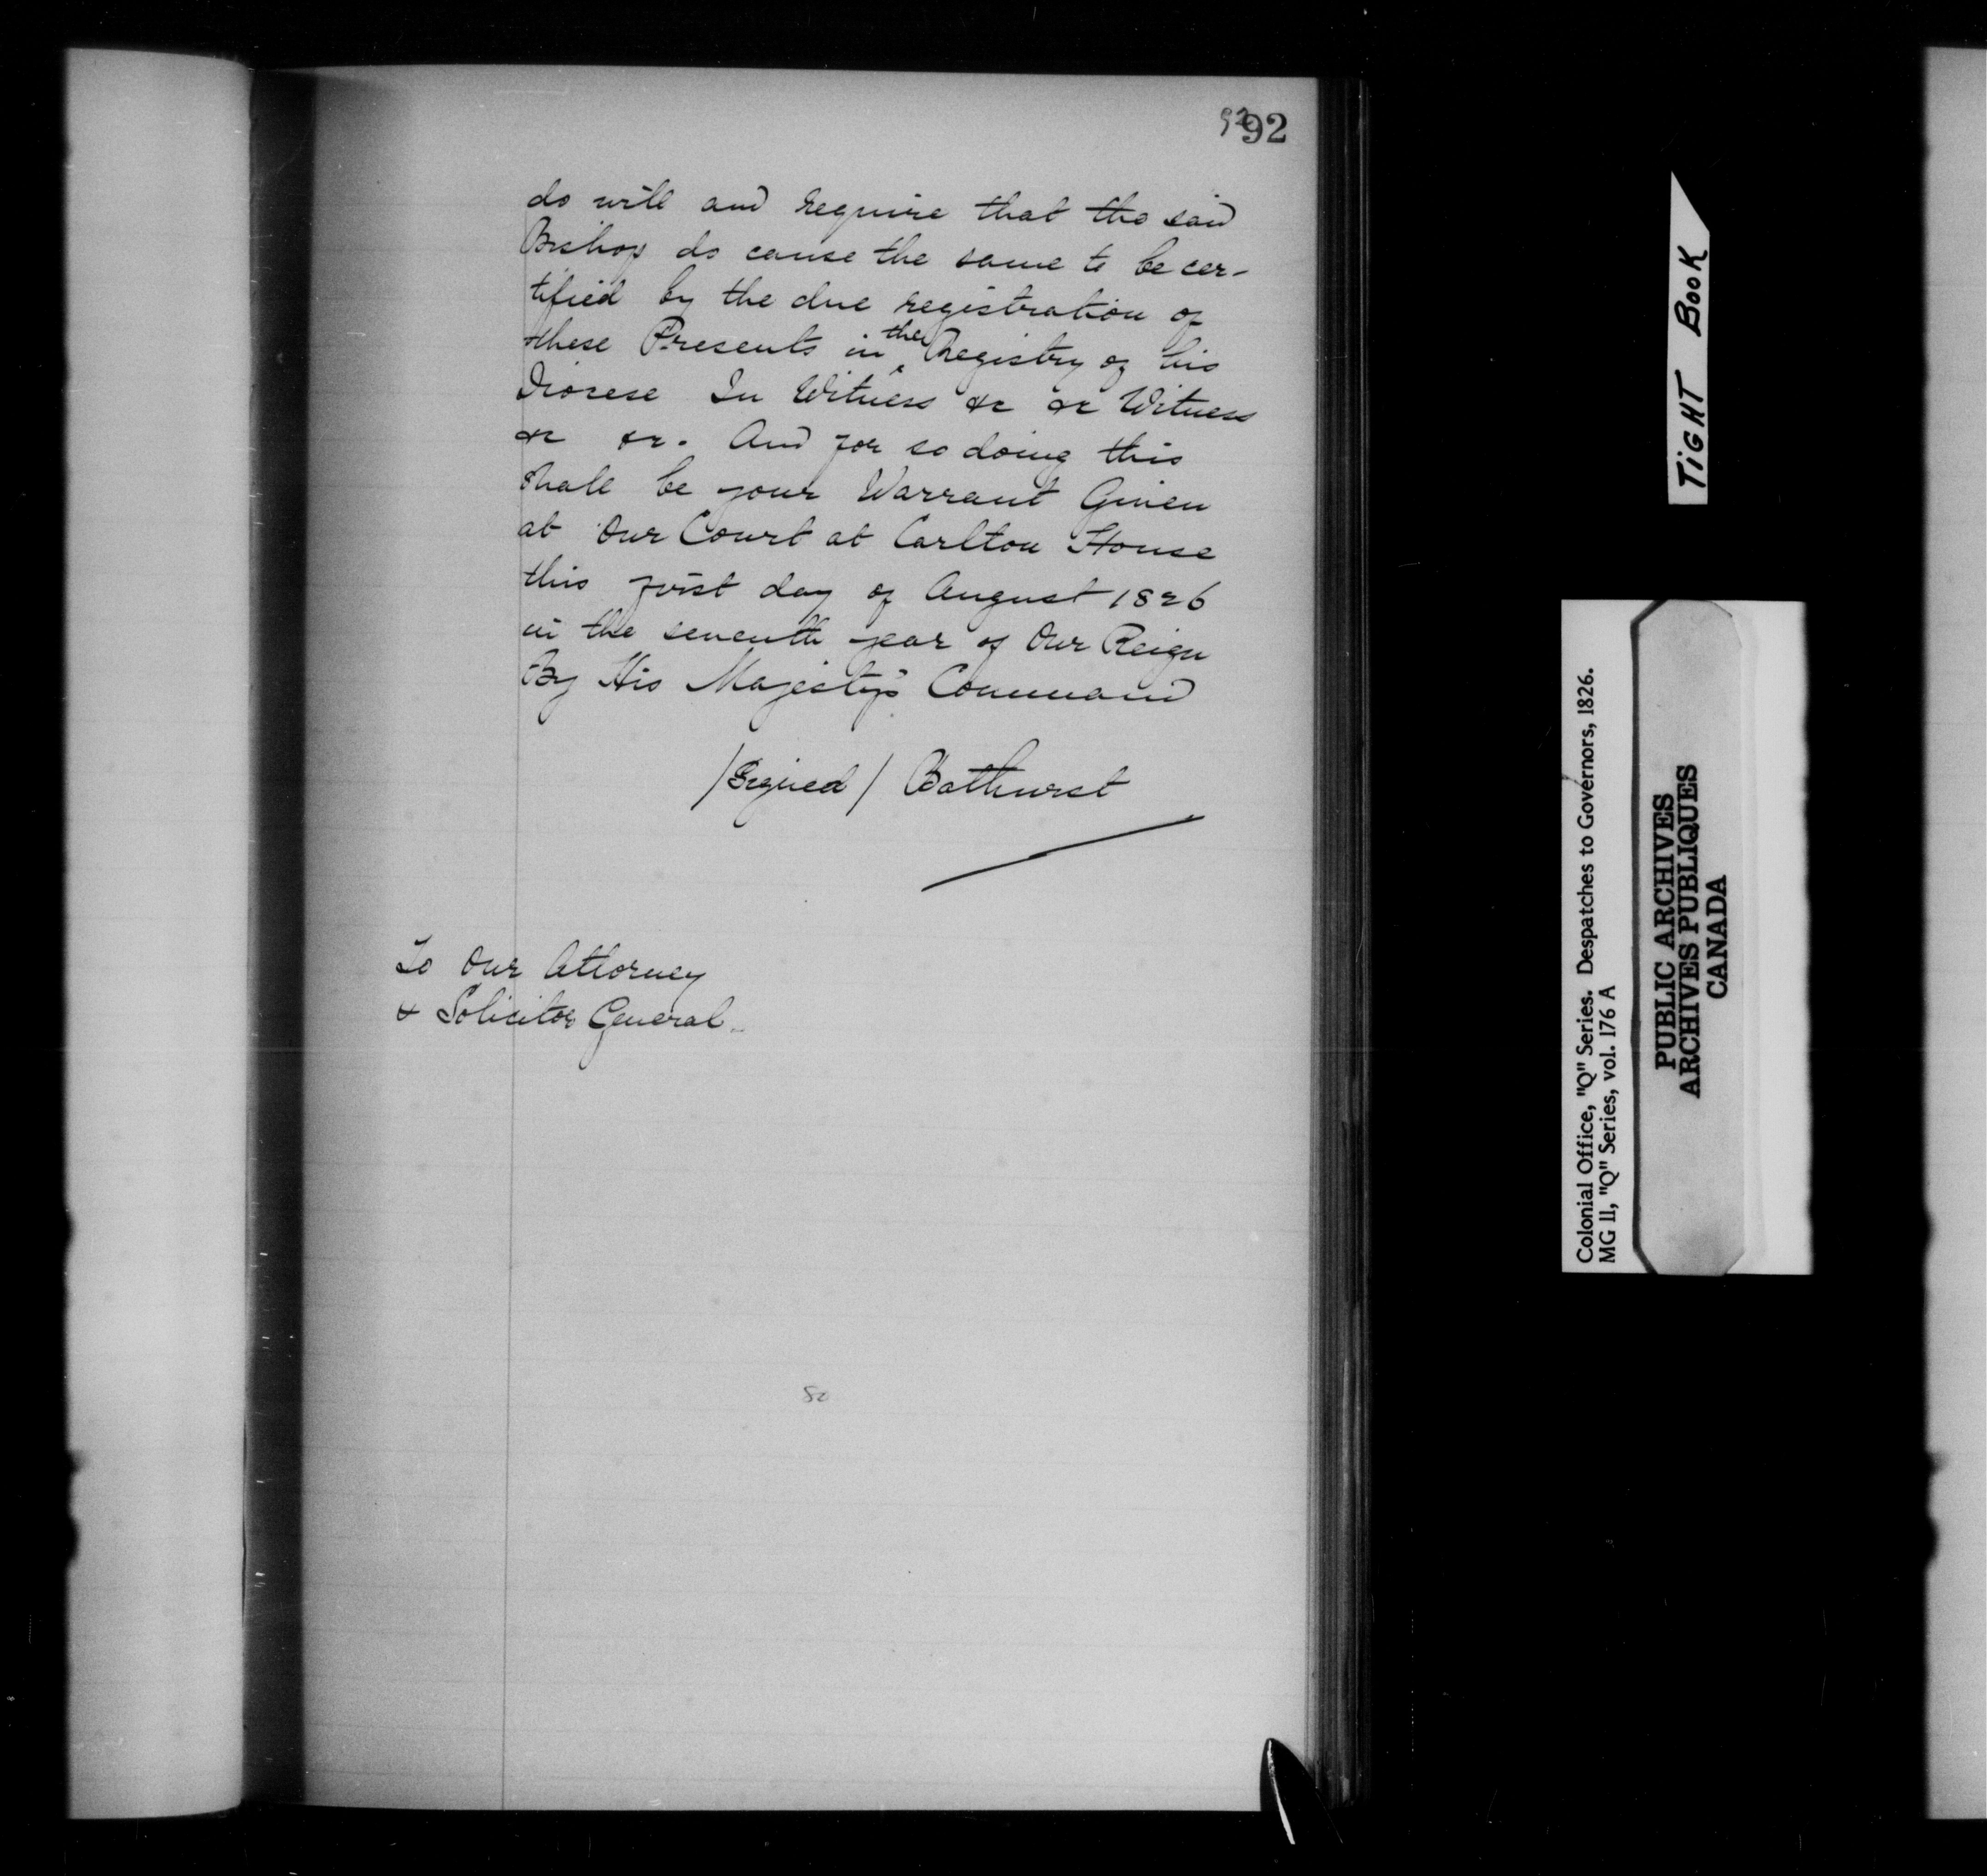 92 92
do will and require that the said
Bishop do cause the same to be cer-
tified by the due registration of
these Presents in the Registry of his
Diocese In Witness &c &c Witness
&c &c. And for so doing this
shall be your Warrant Given
at Our Court at Carlton House
this first day of August 1826
in the seventh year of Our Reign
By His Majesty's Command
/Signed/ Bathurst
To Our Attorney
& Solicitor General.
TIGHT BOOK
Colonial Office, "Q" Series. Despatches to Governors, 1826.
MG 11, "Q" Series, vol. 176 A
PUBLIC ARCHIVES
ARCHIVES PUBLIQUES
CANADA